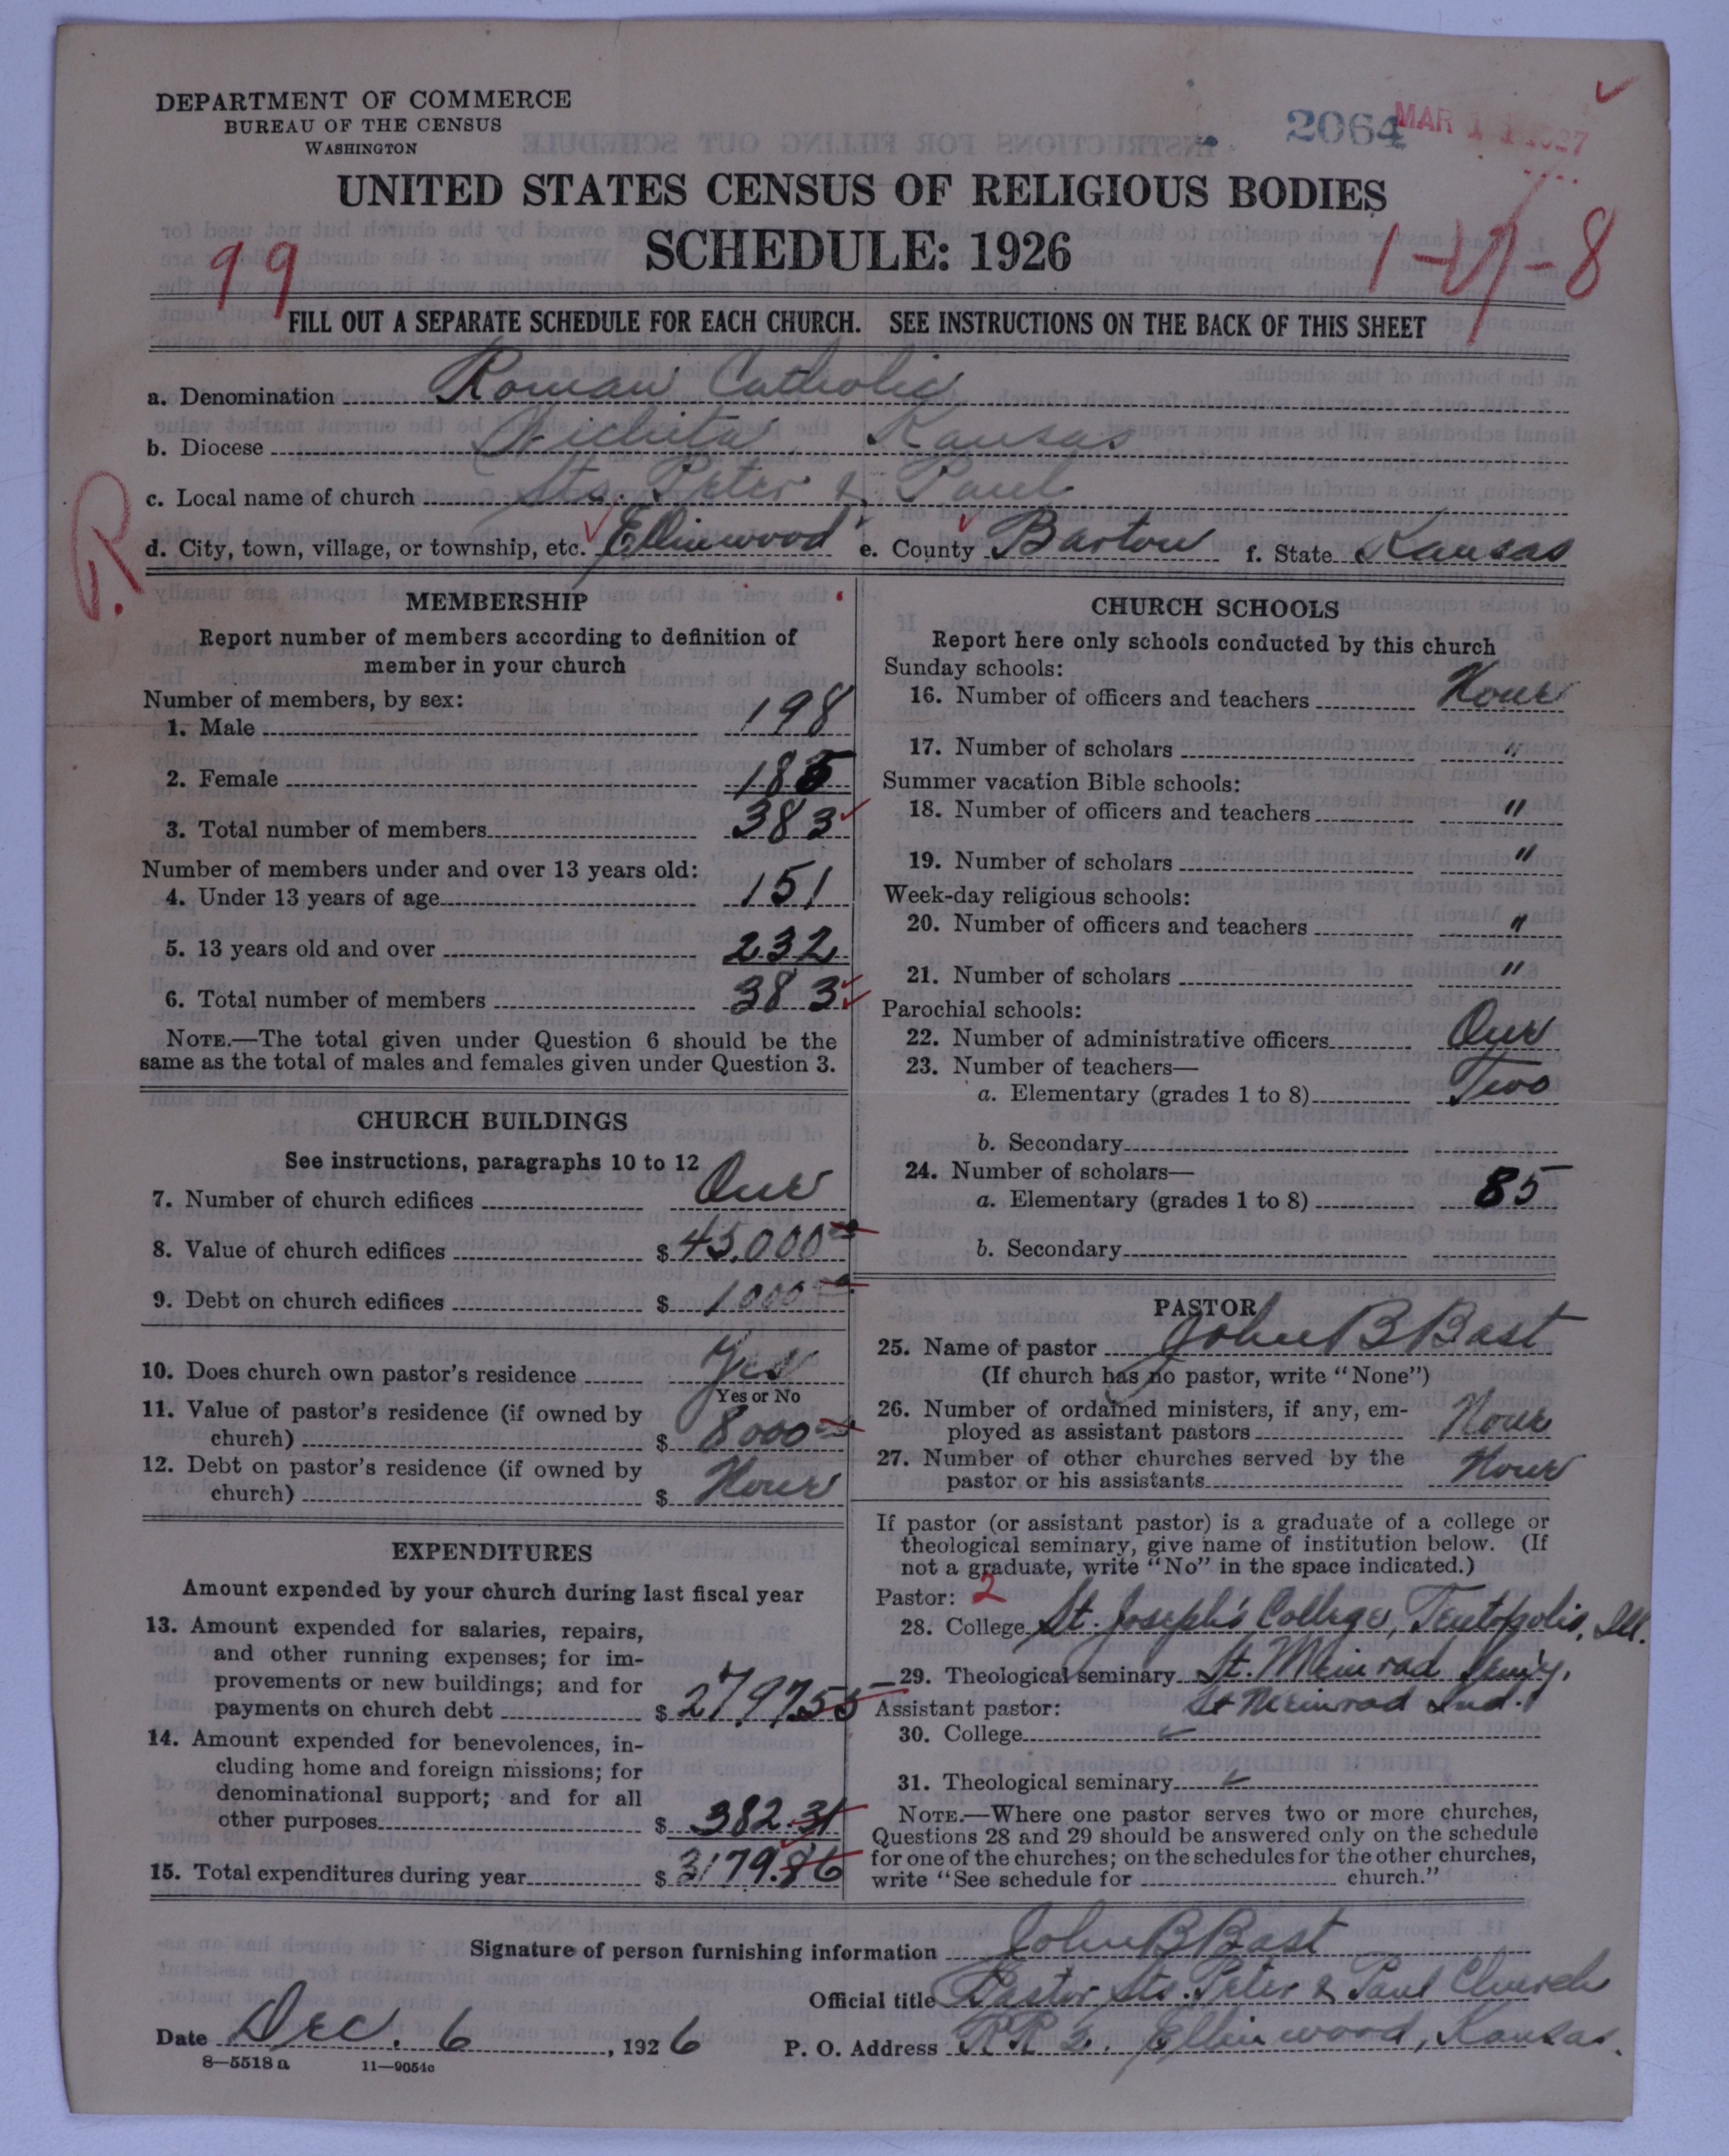 DEPARTMENT OF COMMERCE
BUREAU OF THE CENSUS
WASHINGTON
2064
MAR 11 1927
UNITED STATES CENSUS OF RELIGIOUS BODIES
SCHEDULE: 1926
99
1-17-8
FILL OUT A SEPARATE SCHEDULE FOR EACH CHURCH. SEE INSTRUCTIONS ON THE BACK OF THIS SHEET
a. Denomination Roman Catholic
b. Diocese Wichita Kansas
c. Local name of church Sts. Peter & Paul
d. City, town, village, or township, etc. Ellinwood e. County Barton f. State Kansas
MEMBERSHIP
Report number of members according to definition of
member in your church
Number of members, by sex:
1. Male 198
2. Female 185
3. Total number of members 383
Number of members under and over 13 years old:
4. Under 13 years of age 151
5. 13 years old and over 232
6. Total number of members 383
NOTE.—The total given under Question 6 should be the
same as the total of males and females given under Question 3.
CHURCH BUILDINGS
See instructions, paragraphs 10 to 12
7. Number of church edifices One
8. Value of church edifices $ 45,000
9. Debt on church edifices $ 1000
10. Does church own pastor's residence Yes
Yes or No
11. Value of pastor's residence (if owned by
church) $ 8000
12. Debt on pastor's residence (if owned by
church) $ None
EXPENDITURES
Amount expended by your church during last fiscal year
13. Amount expended for salaries, repairs,
and other running expenses; for im-
provements or new buildings; and for
payments on church debt $ 2797.55
14. Amount expended for benevolences, in-
cluding home and foreign missions; for
denominational support; and for all
other purposes $ 382.31
15. Total expenditures during year $ 3179.86
CHURCH SCHOOLS
Report here only schools conducted by this church
Sunday schools:
16. Number of officers and teachers None
17. Number of scholars "
Summer vacation Bible schools:
18. Number of officers and teachers "
19. Number of scholars "
Week-day religious schools:
20. Number of officers and teachers "
21. Number of scholars "
Parochial schools:
22. Number of administrative officers One
23. Number of teachers—
a. Elementary (grades 1 to 8) Two
b. Secondary
24. Number of scholars—
a. Elementary (grades 1 to 8) 85
b. Secondary
PASTOR
25. Name of pastor John B Bast
(If church has no pastor, write "None")
26. Number of ordained ministers, if any, em-
ployed as assistant pastors None
27. Number of other churches served by the
pastor or his assistants None
If pastor (or assistant pastor) is a graduate of a college or
theological seminary, give name of institution below. (If
not a graduate, write "No" in the space indicated.)
Pastor: 2
28. College St. Joseph's College, Teutopolis, Ill.
29. Theological seminary St. Meinrad Semi'y,
St Meinrad Ind.
Assistant pastor:
30. College
31. Theological seminary
NOTE.—Where one pastor serves two or more churches,
Questions 28 and 29 should be answered only on the schedule
for one of the churches; on the schedules for the other churches,
write "See schedule for church."
Signature of person furnishing information John B Bast
Official title Pastor Sts. Peter & Paul Church
Date Dec. 6, 1926 P. O. Address RR 3. Ellinwood, Kansas.
8—5518 a 11—9054c